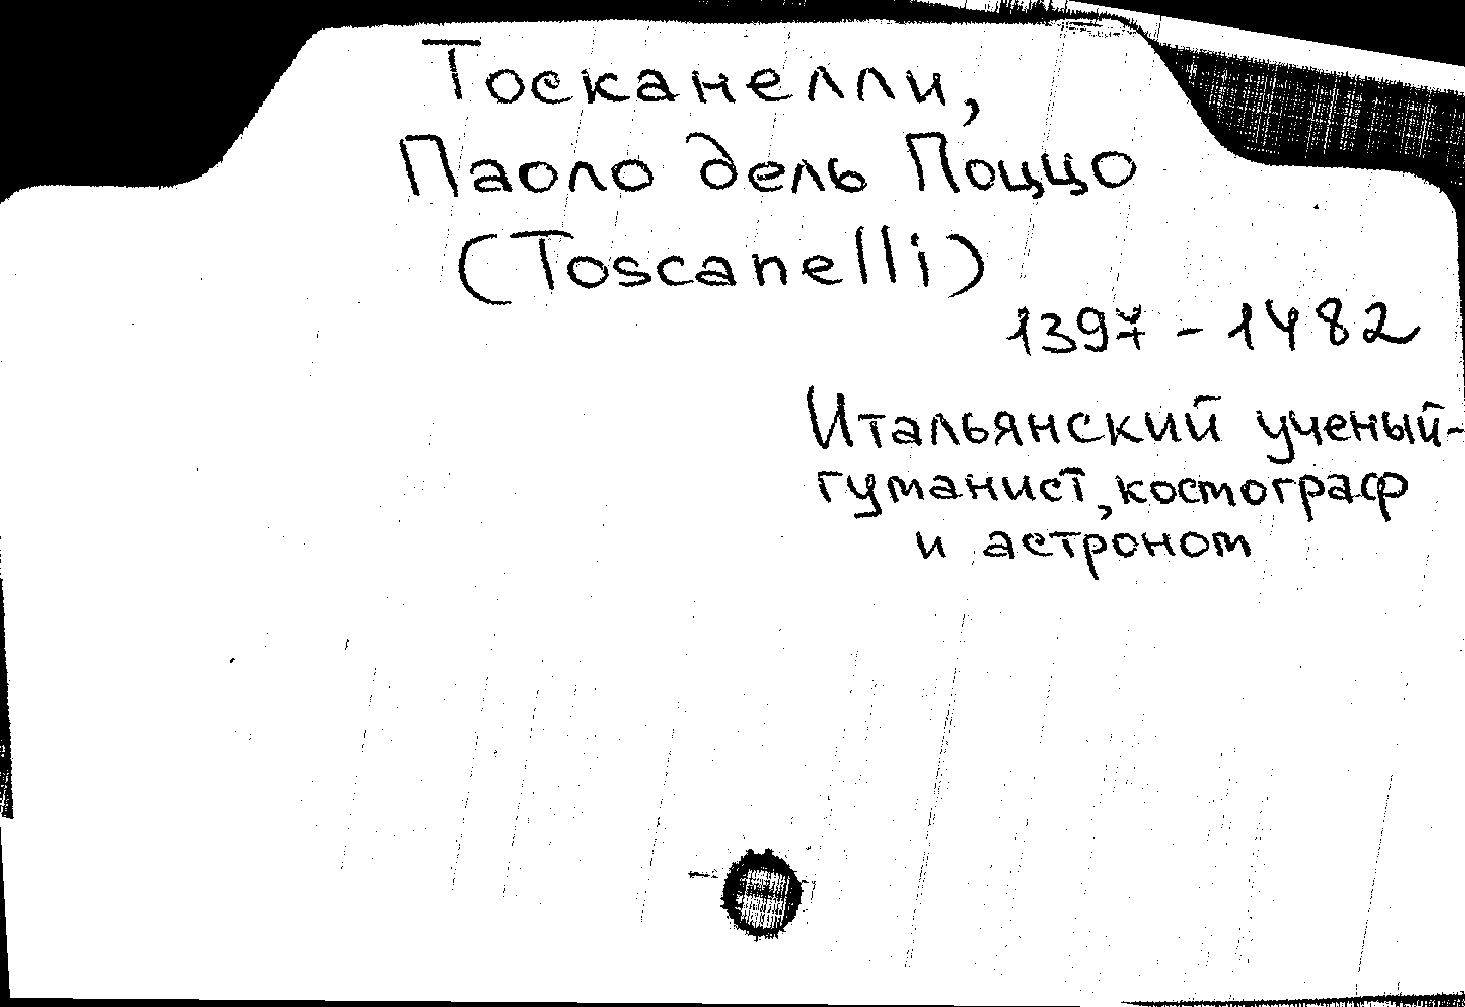 Тосканелли,
Паоло дель Поццо
(Toscanelli)
1397 - 1482
Итальянский ученый-
гуманист, космограф
и астроном